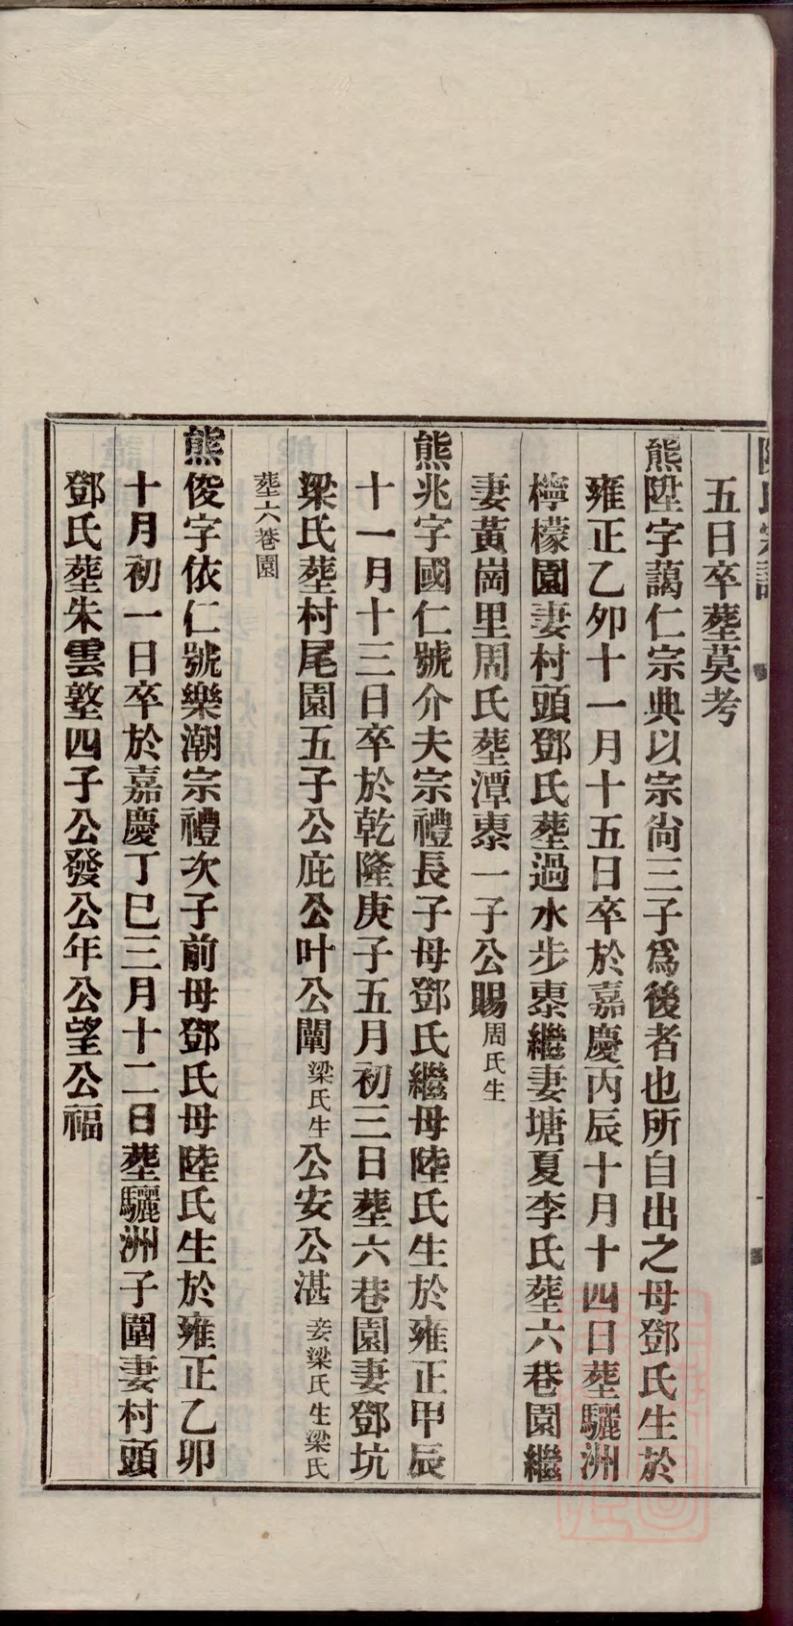 五日卒塟莫考
熊陞字藹仁宗典以宗尙三子爲後者也所自出之母鄧氏生於
雍正乙夘十一月十五日卒於嘉慶丙辰十月十四日塟驪洲
檸檬園妻村頭鄧氏塟過水步𡊨繼妻塘夏李氏塟六巷園繼
妻黃崗里周氏塟潭𡊨一子公賜周氏生
熊兆字國仁號介夫宗禮長子母鄧氏繼母陸氏生於雍正甲辰
十一月十三日卒於乾隆庚子五月初三日塟六巷園妻鄧坑
梁氏塟村尾園五子公庇公叶公闈梁氏生公安公湛妾梁氏生梁氏
塟六巷園
熊俊字依仁號樂潮宗禮次子前母鄧氏母陸氏生於雍正乙卯
十月初一日卒於嘉慶丁巳三月十二日塟驪洲子圍妻村頭
鄧氏塟朱雲塾四子公發公年公望公福